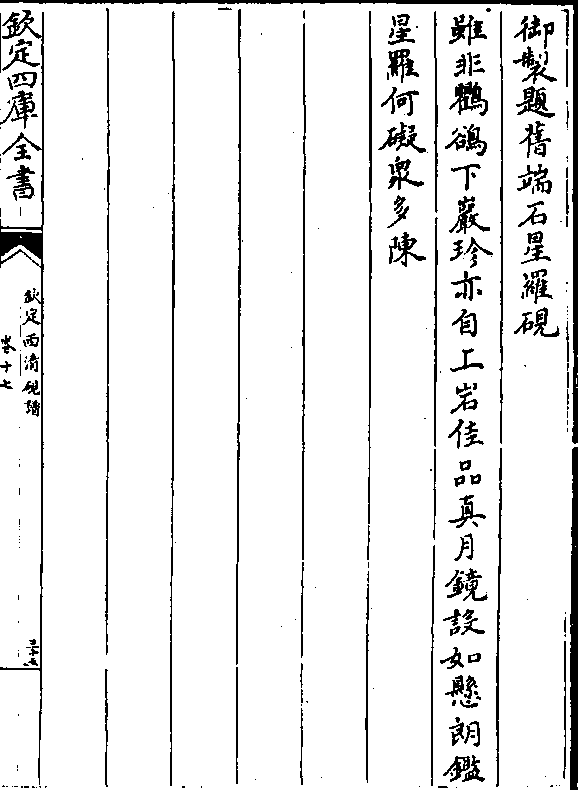 御製題舊端石星羅硯
雖非鸜鵒下巖珍亦自上岩佳品真月鏡設如懸朗鑑
星羅何礙衆多陳
欽定四庫全書
欽定西清硯譜
卷十七
三十五